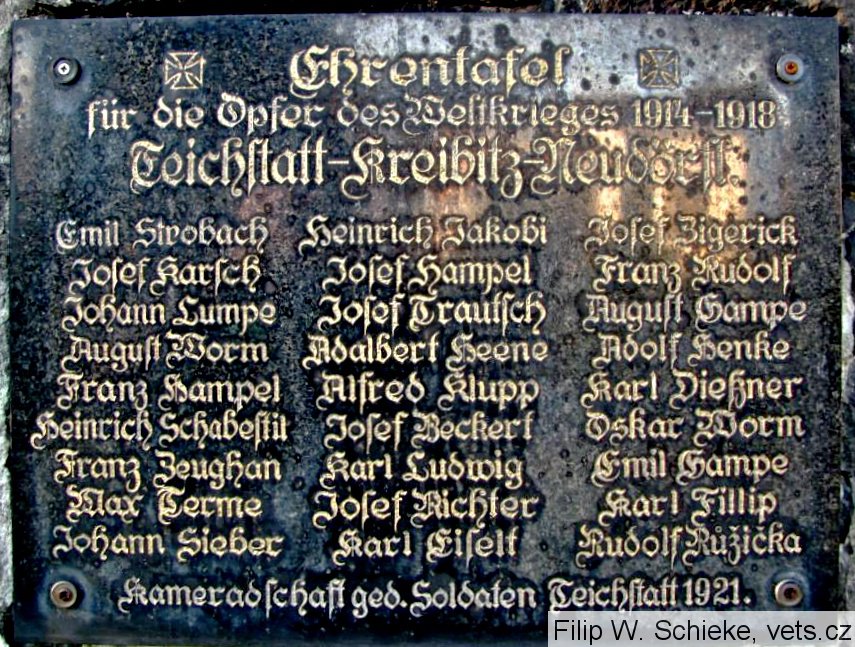 Ehrentafel
für die Opfer des Weltkrieges 1914-1918
Teichstatt-Kreibitz-Neudörfl.
Emil Strobach Heinrich Jakobi Josef Zigerick
Josef Karsch Josef Hampel Franz Rudolf
Johann Lumpe Josef Trautsch August Gampe
August Worm Adalbert Heene Adolf Henke
Franz Hampel Alfred Klupp Karl Dießner
Heinrich Schabestil Josef Beckert Oskar Worm
Franz Zeughan Karl Ludwig Emil Gampe
Max Terme Josef Richter Karl Fillip
Johann Sieber Karl Eiselt Rudolf Růžička
Kameradschaft ged. Soldaten Teichstatt 1921.
Filip W. Schieke, vets.cz